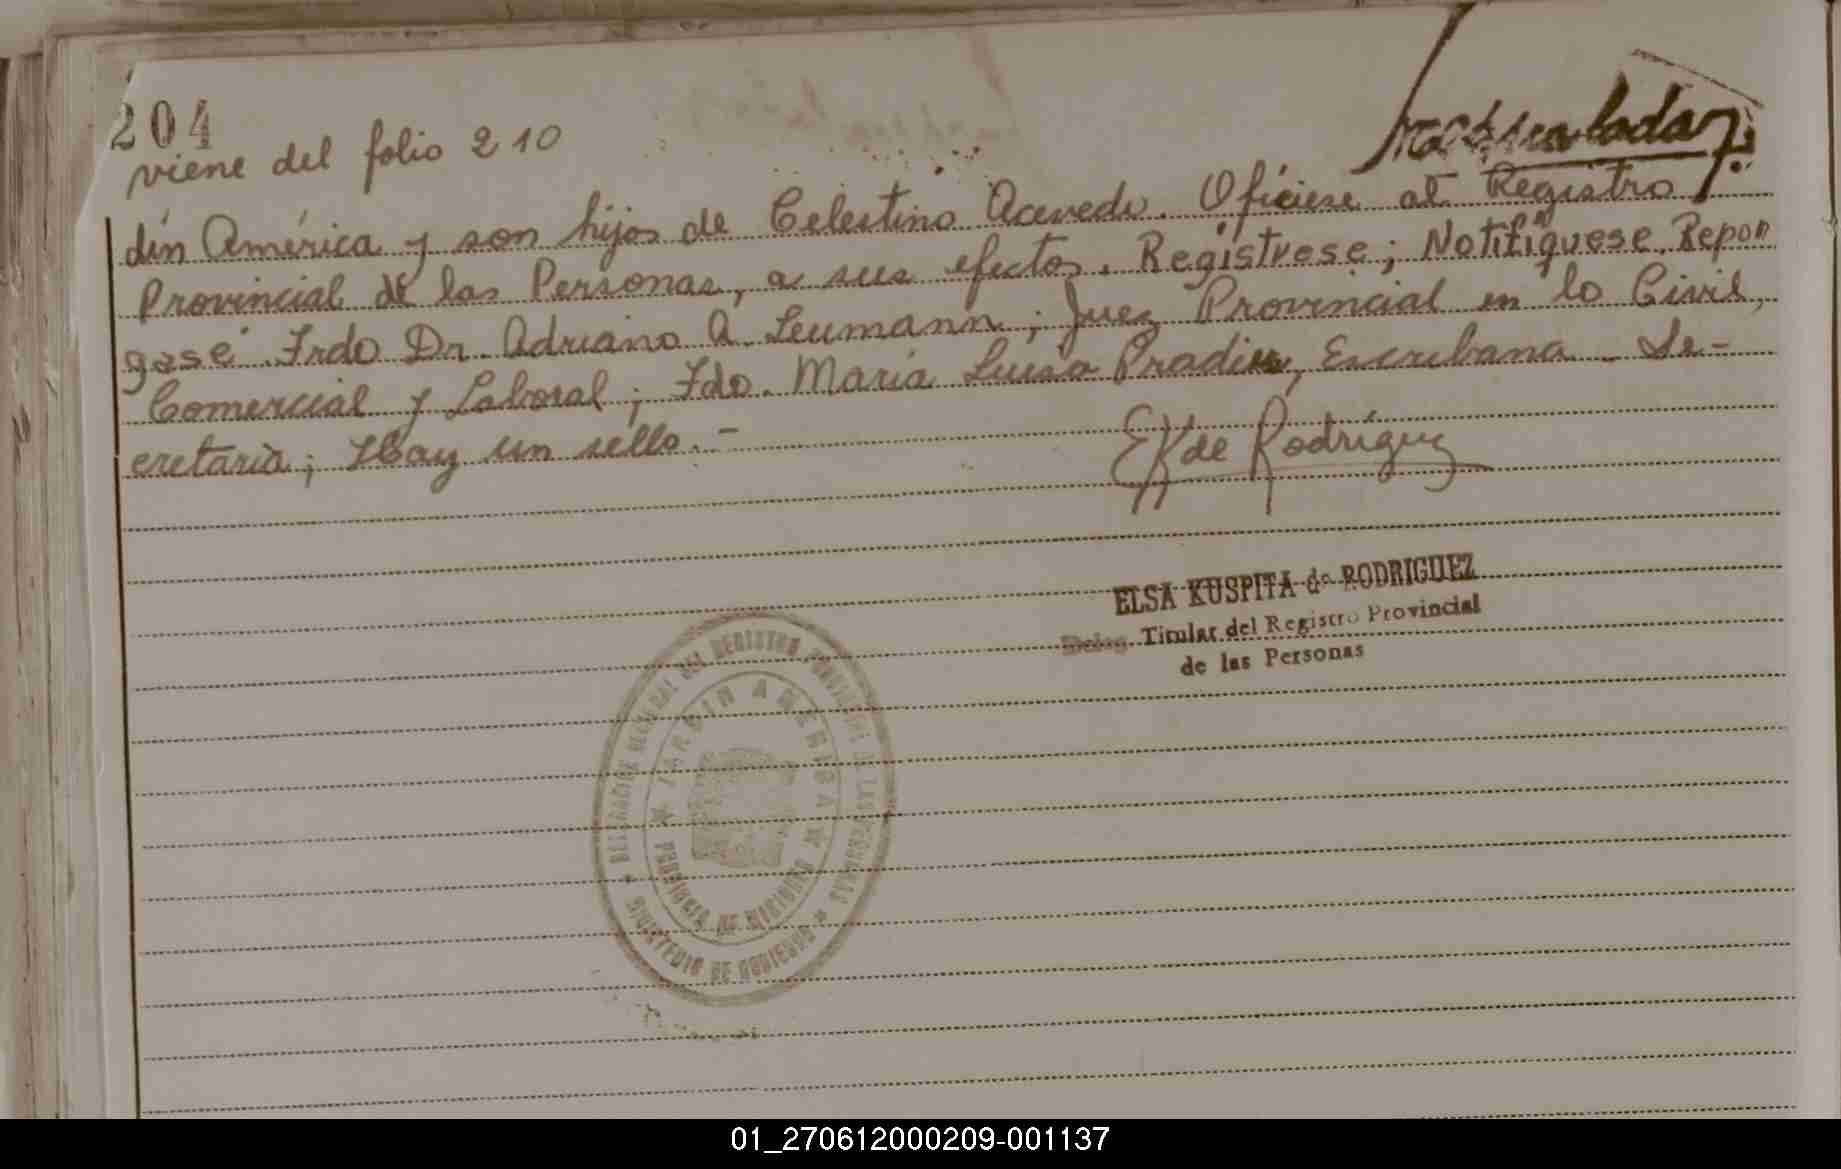 204
viene del folio 210
dín América y son hijos de Celestino Acevedo. Ofíciese al Registro
Provincial de las Personas, a sus efectos. Regístrese; Notifíquese. Repon
gase. Frdo Dr. Adriano A. Leumann; Juez Provincial en lo Civil,
Comercial y Laboral; Fdo. María Luisa Pradier, Escribana - Se-
cretaria; Hay un sello. -
EK de Rodríguez
ELSA KUSPITA de RODRIGUEZ
Deleg. Titular del Registro Provincial
de las Personas
DELEGACION SECCIONAL DEL REGISTRO PROVINCIAL DE LAS PERSONAS
JARDIN AMERICA
PROVINCIA DE MISIONES
MINISTERIO DE GOBIERNO
01_270612000209-001137